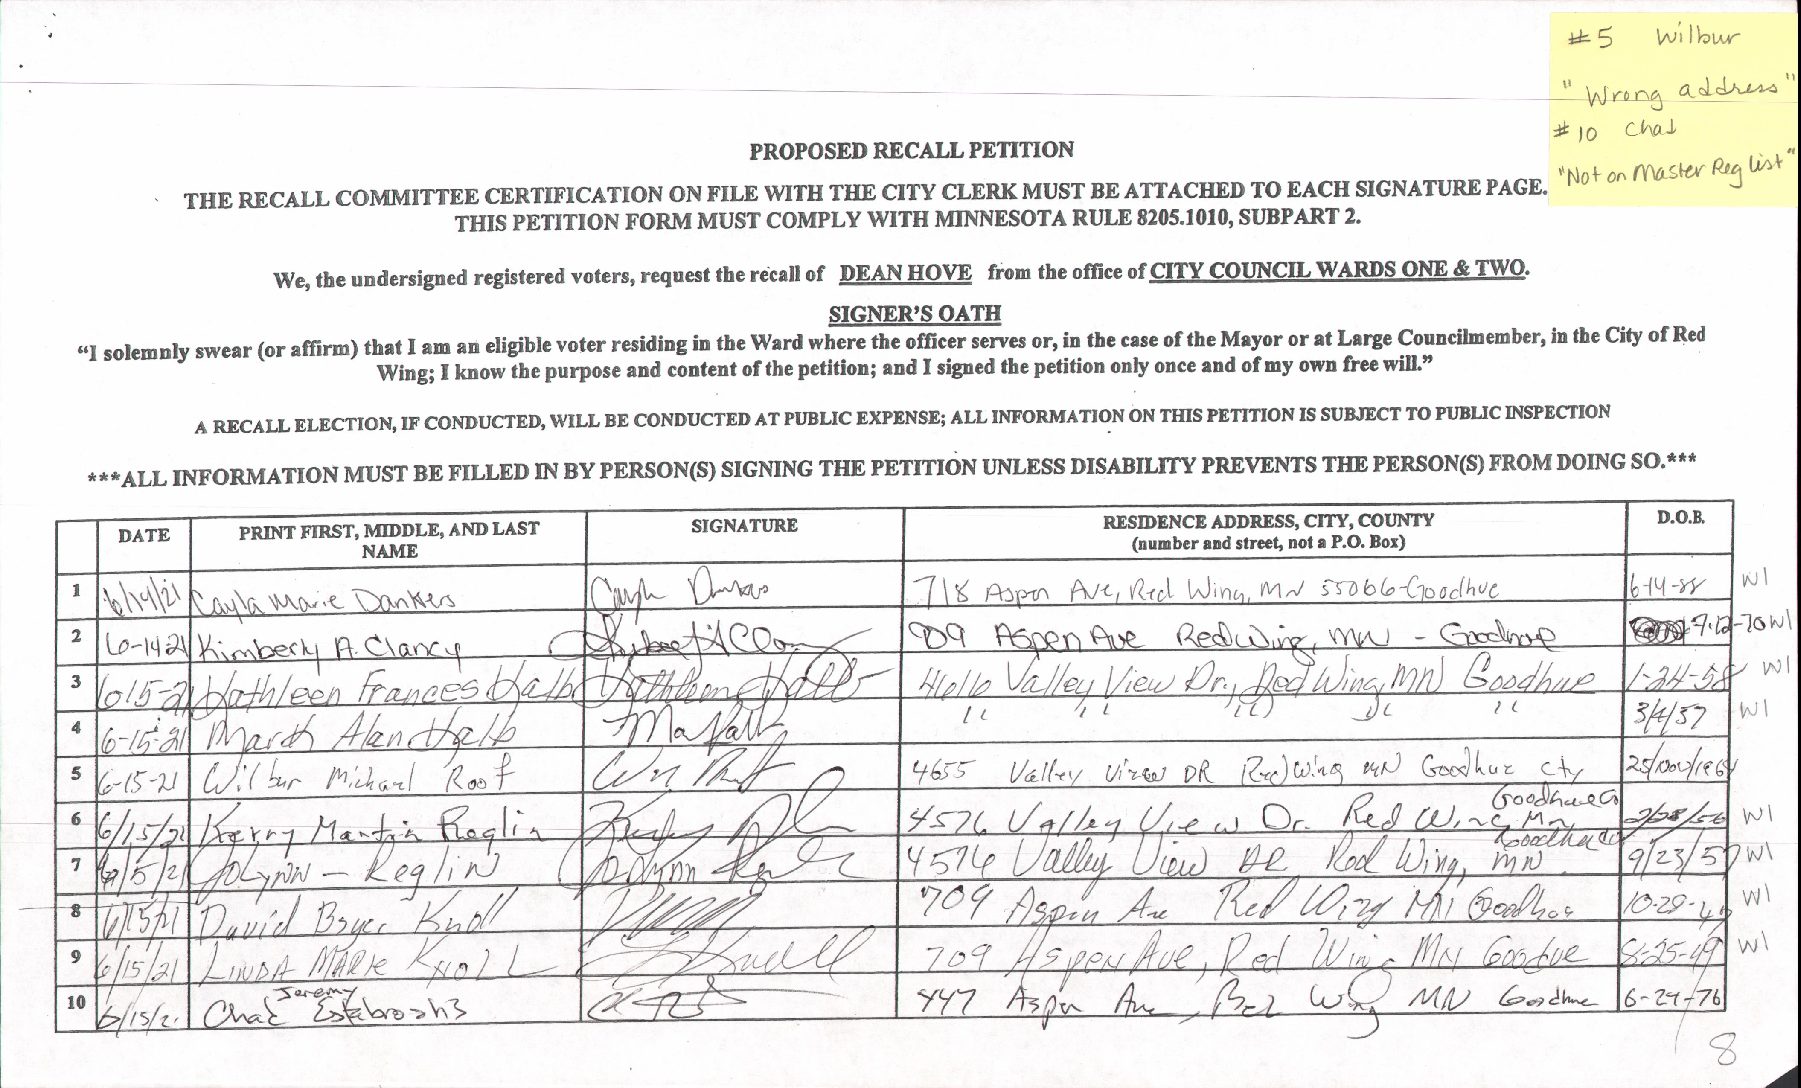 #5 Wilbur
"Wrong address"
#10 Chad
"Not on Master Reg list"
PROPOSED RECALL PETITION
THE RECALL COMMITTEE CERTIFICATION ON FILE WITH THE CITY CLERK MUST BE ATTACHED TO EACH SIGNATURE PAGE.
THIS PETITION FORM MUST COMPLY WITH MINNESOTA RULE 8205.1010, SUBPART 2.
We, the undersigned registered voters, request the recall of DEAN HOVE from the office of CITY COUNCIL WARDS ONE & TWO.
SIGNER'S OATH
"I solemnly swear (or affirm) that I am an eligible voter residing in the Ward where the officer serves or, in the case of the Mayor or at Large Councilmember, in the City of Red
Wing; I know the purpose and content of the petition; and I signed the petition only once and of my own free will."
A RECALL ELECTION, IF CONDUCTED, WILL BE CONDUCTED AT PUBLIC EXPENSE; ALL INFORMATION ON THIS PETITION IS SUBJECT TO PUBLIC INSPECTION
***ALL INFORMATION MUST BE FILLED IN BY PERSON(S) SIGNING THE PETITION UNLESS DISABILITY PREVENTS THE PERSON(S) FROM DOING SO.***
DATE PRINT FIRST, MIDDLE, AND LAST NAME SIGNATURE RESIDENCE ADDRESS, CITY, COUNTY (number and street, not a P.O. Box) D.O.B.
1 6/14/21 Cayla Marie Dankers 718 Aspen Ave, Red Wing, MN 55066-Goodhue 6-14-88 W1
2 6-14-21 Kimberly A. Clancy 909 Aspen Ave Red Wing, MN - Goodhue 7-12-70 W1
3 6-15-21 Kathleen Frances Halb 4616 Valley View Dr., Red Wing, MN Goodhue 1-24-58 W1
4 6-15-21 Alan Halb " " " " " 3/4/57 W1
5 6-15-21 Wilbur Michael Roof 4655 Valley View DR Red Wing MN Goodhue cty
6 6/15/21 Kerry Martin Reglin 4576 Valley View Dr. Red Wing MN Goodhue Co 2/28/56 W1
7 6/15/21 JoLynn - Reglin 4576 Valley View DR Red Wing, MN Goodhue 9/23/57 W1
8 6/15/21 David Knoll 709 Aspen Ave Red Wing MN Goodhue W1
9 6/15/21 LINDA MARIE KNOLL 709 Aspen Ave, Red Wing MN Goodue 8-25-49 W1
10 6/15/21 Chad Jeremy 447 Aspen Ave, Red Wing MN Goodhue 6-29-76
8